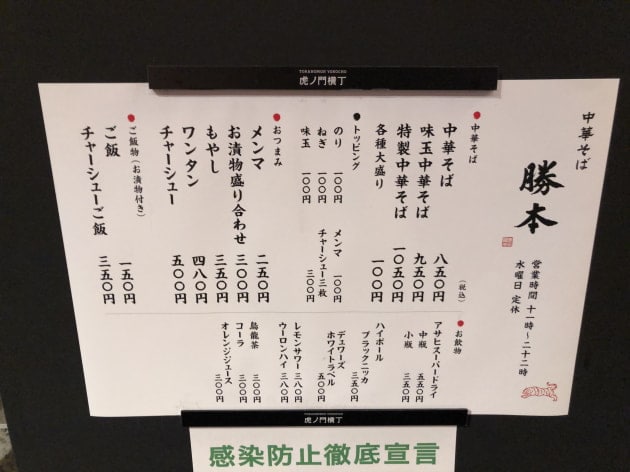 TORANOMON YOKOCHO
虎ノ門横丁
中華そば
勝本
営業時間 十一時〜二十二時
水曜日 定休
●中華そば
(税込)
中華そば 八五〇円
味玉中華そば 九五〇円
特製中華そば 一〇五〇円
各種大盛り 一〇〇円
●トッピング
のり 一〇〇円 メンマ 一〇〇円
ねぎ 一〇〇円 チャーシュー三枚 三〇〇円
味玉 一〇〇円
●おつまみ
メンマ 二五〇円
お漬物盛り合わせ 三〇〇円
もやし 三五〇円
ワンタン 四八〇円
チャーシュー 五〇〇円
●ご飯物(お漬物付き)
ご飯 一五〇円
チャーシューご飯 三五〇円
●お飲物
アサヒスーパードライ
中瓶 五五〇円
小瓶 三五〇円
ハイボール
ブラックニッカ 三五〇円
デュワーズ
ホワイトラベル 五〇〇円
レモンサワー 三八〇円
ウーロンハイ 三八〇円
烏龍茶 三〇〇円
コーラ 三〇〇円
オレンジジュース 三〇〇円
TORANOMON YOKOCHO
虎ノ門横丁
感染防止徹底宣言